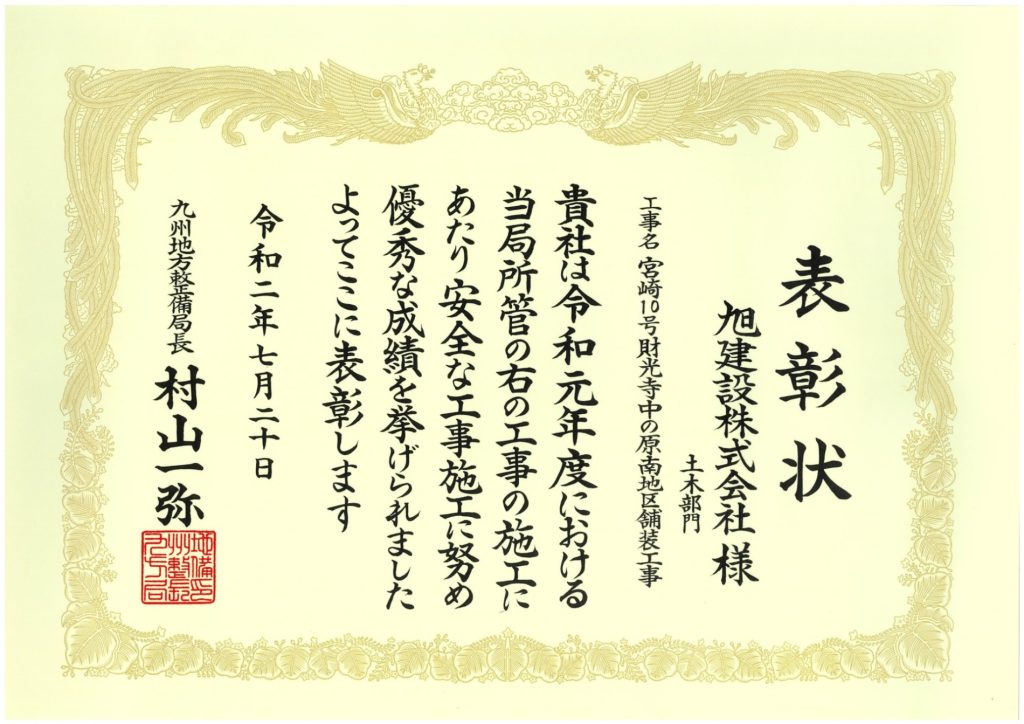 表彰状
旭建設株式会社 様
土木部門
工事名 宮崎10号財光寺中の原南地区舗装工事
貴社は令和元年度における
当局所管の右の工事の施工に
あたり安全な工事施工に努め
優秀な成績を挙げられました
よってここに表彰します
令和二年七月二十日
九州地方整備局長 村山一弥